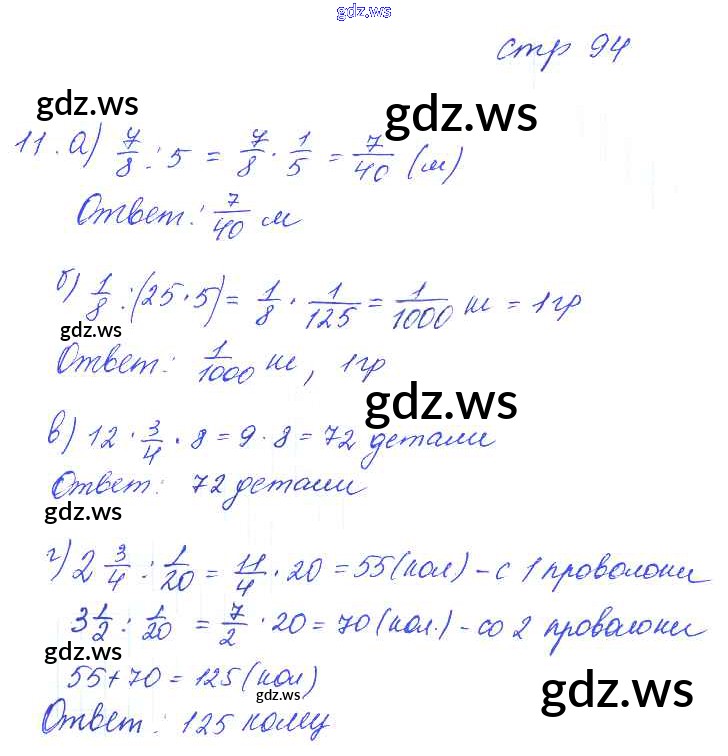 gdz.ws
стр 94
gdz.ws
gdz.ws
11. а) 7/8 : 5 = 7/8 · 1/5 = 7/40 (м)
Ответ: 7/40 м
б) 1/8 : (25 · 5) = 1/8 · 1/125 = 1/1000 кг = 1 гр
gdz.ws
Ответ: 1/1000 кг, 1 гр
gdz.ws
в) 12 · 3/4 · 8 = 9 · 8 = 72 детали
Ответ: 72 детали
gdz.ws
г) 2 3/4 : 1/20 = 11/4 · 20 = 55 (кол) - с 1 проволоки
3 1/2 : 1/20 = 7/2 · 20 = 70 (кол.) - со 2 проволоки
gdz.ws
55 + 70 = 125 (кол)
gdz.ws
gdz.ws
Ответ: 125